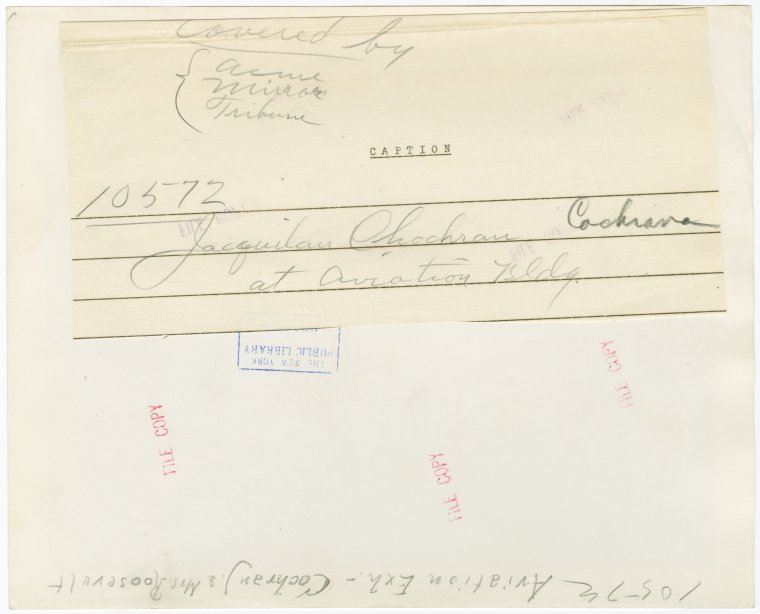 Covered by
Acme
Mirror
Tribune
CAPTION
10572
Jacquilan Chochran Cochrane
at Aviation Bldg.
FILE COPY
FILE COPY
FILE COPY
THE NEW YORK
PUBLIC LIBRARY
FILE COPY
FILE COPY
FILE COPY
10572 Aviation Exh. - Cochran, J. & Mrs. Roosevelt